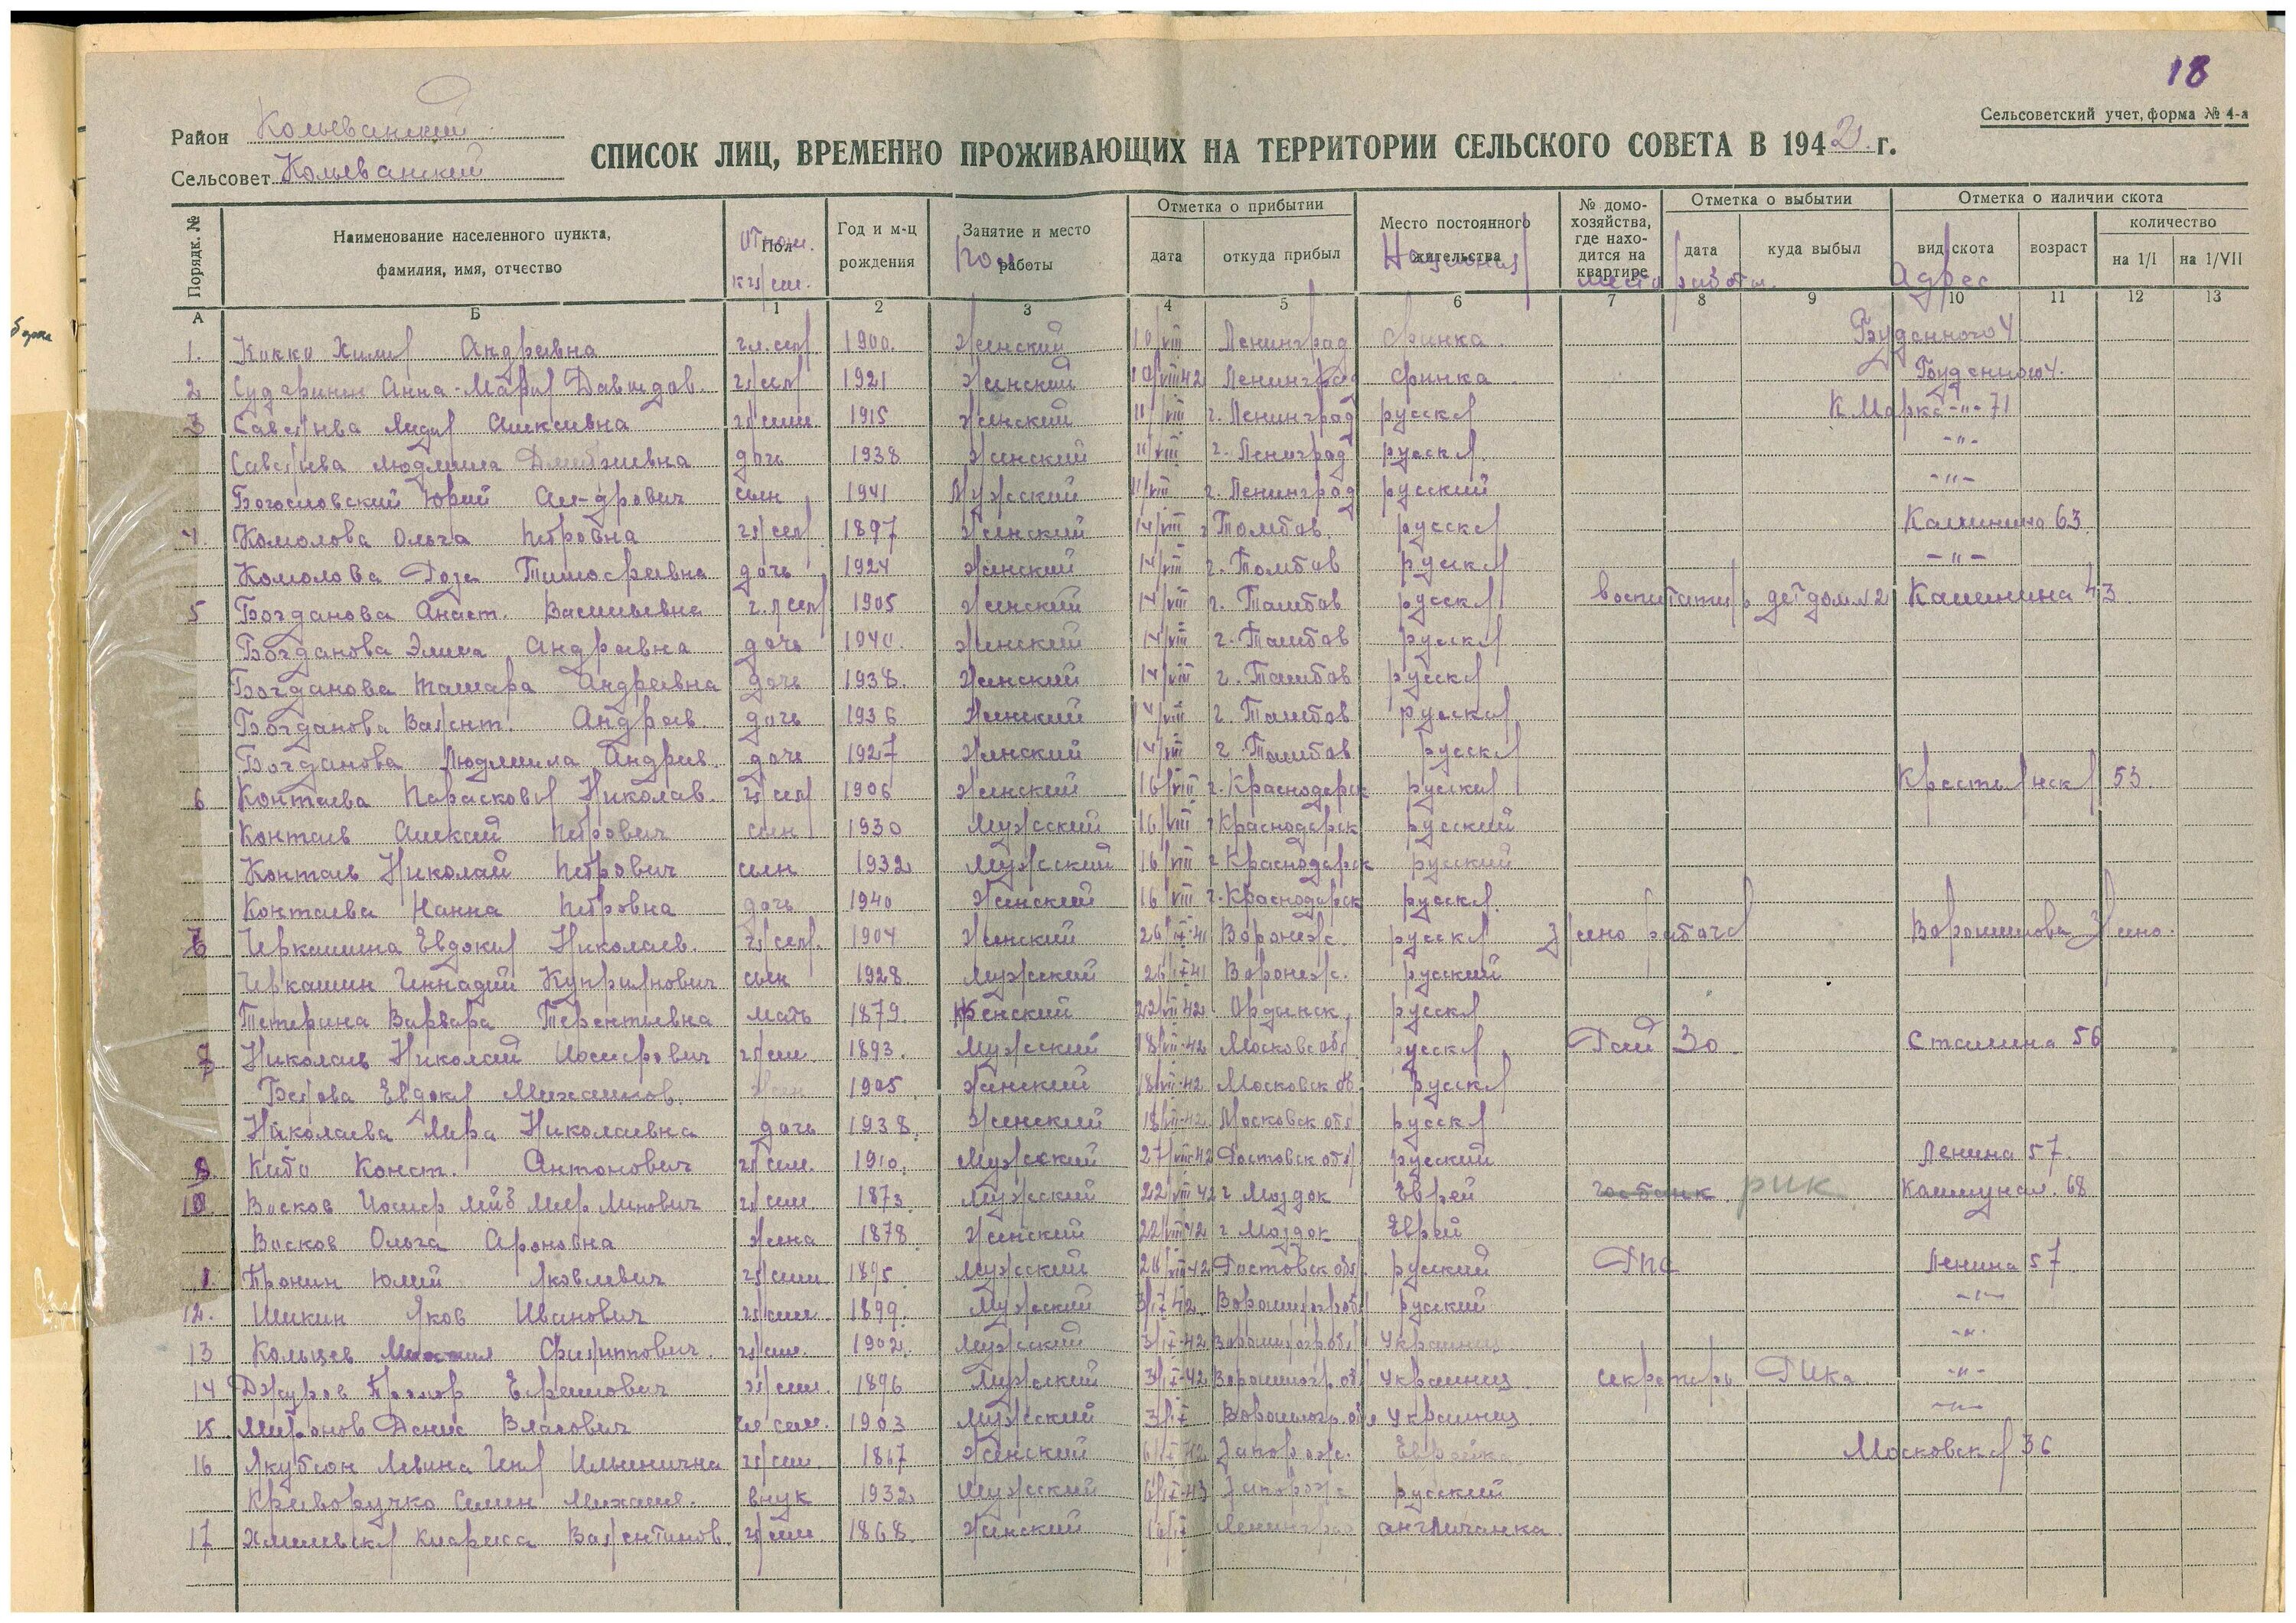 18
Сельсоветский учет, форма № 4-а
Район Колыванский
Сельсовет Колыванский
СПИСОК ЛИЦ, ВРЕМЕННО ПРОЖИВАЮЩИХ НА ТЕРРИТОРИИ СЕЛЬСКОГО СОВЕТА В 1942 г.
Порядк. №
Наименование населенного пункта, фамилия, имя, отчество
Пол
Год и м-ц рождения
Занятие и место работы
Пол
Отметка о прибытии
дата
откуда прибыл
Место постоянного жительства
№ домохозяйства, где находится на квартире
место работы
Отметка о выбытии
дата
куда выбыл
Отметка о наличии скота
вид скота
Адрес
возраст
количество
на 1/I
на 1/VII
А Б 1 2 3 4 5 6 7 8 9 10 11 12 13
1. Кокко Андреевна 1900. Женский 10/VIII Ленинград финка Буденного 4
2 Анна-Мария Давыдов. 1921 Женский 10/VIII 42 Ленинград финка Буденного 4.
3 Савельева Лидия Алексеевна гл/сем. 1915 Женский 11/VIII г. Ленинград русская К Маркс -"- 71
Савельева Людмила дочь 1938 Женский 11/VIII г. Ленинград русская -"-
Богословский Юрий Ал-дрович сын 1941 Мужский 11/VIII г. Ленинград русский -"-
4. Комолова Ольга Петровна 1897 Женский 14/VIII г Томбов. русская Калинина 63
Комолова Роза Тимофеевна дочь 1924 Женский 14/VIII г. Томбов русская -"-
5 Богданова Анаст. Васильевна 1905 Женский 14/VIII г. Тамбов русская детдом № 2 Калинина 43
Богданова Андреевна дочь 1940. Женский 14/VIII г. Тамбов русская
Богданова Тамара Андреевна дочь 1938. Женский 14/VIII г. Тамбов русская
Богданова Валент. Андреев. дочь 1936 Женский 14/VIII г. Тамбов русская
Богданова Людмила Андреев. дочь 1927 Женский 14/VIII г. Тамбов русская
6 Контаева Парасковья Николав. 1906 Женский 16/VIII г. Краснодарск русская Крестьянская 53.
Контаев Алексей Петрович сын 1930 Мужский 16/VIII г Краснодарск русский
Контаев Николай Петрович сын 1932 Мужский 16/VIII г Краснодарск русский
Контаева Нанна Петровна дочь 1940 Женский 16/VIII г. Краснодарск русская
Черкашина Евдокия Николаев. 1904 Женский 26/IX-41 Воронеж. русская Ворошилова
Черкашин Геннадий сын 1928 Мужский 26/IX 41 Воронеж. русский
Тетерина Варвара Терентьевна мать 1879. Женский 22/VII 42 Ордынск. русская
8 Николаев Николай Иосифович гл/сем. 1893. Мужский 18/VII-42 Московс обл русская 30 Сталина 56
Белова Евдокия Михайлов. 1905 Женский 18/VII-42 Московск об. русская
Николаева Лира Николаевна дочь 1938. Женский 18/VII-42. Московск обл русская
9. Кибо Конст. Антонович гл/сем. 1910. Мужский 27/VIII-42 Ростовск обл русский Ленина 57.
10. Восков Иосиф гл/сем. 1873. Мужский 22/VIII 42 г Моздок Еврей госбанк рик Коммунал. 68
Восков Ольга Ароновна жена 1878. Женский 22/VIII 42 г Моздок Еврей
Пронин Юлий Яковлевич гл/сем. 1895. Мужский Ростовск обл. русский Ленина 57
12. Шикин Яков Иванович гл/сем. 1899. Мужский 3/IX 42. русский -"-
13 Кольцев Филиппович. гл/сем. 1902. Мужский 3/IX-42 Украинец -"-
14 гл/сем. 1896 Мужский 3/IX-42 Украинец секретарь -"-
15. Миронов Денис Власович гл сем. 1903 Мужский 3/IX Украинец -"-
16 Якубсон Ильинична гл/сем. 1867 Женский 6/IX-42. Запорож. Еврейка Московская 36
Криворучко Семен Михаил. внук 1932. Мужский 6/IX-43 Запорож русский
17 Валентинов. гл/сем. 1868. Женский Ленинград англичанка